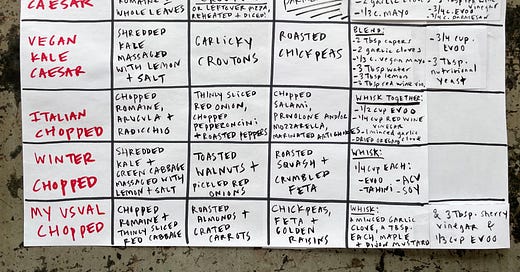 CAESAR
ROMAINE +
WHOLE LEAVES
OR LEFTOVER PIZZA,
REHEATED + DICED!
-2 GARLIC CLOVES
-1/3 C. MAYO
VINEGAR
-3/4 C. EVOO
-1/3 C. PARMESAN
VEGAN
KALE
CAESAR
SHREDDED
KALE
MASSAGED
WITH LEMON
+ SALT
GARLICKY
CROUTONS
ROASTED
CHICKPEAS
BLEND:
-2 TBSP CAPERS
-2 GARLIC CLOVES
-1/3 C. VEGAN MAYO
-3 TBSP WATER
-3 TBSP LEMON
-3 TBSP RED WINE VIN.
-3/4 C.
EVOO
-3 TBSP.
NUTRITIONAL
YEAST
ITALIAN
CHOPPED
CHOPPED
ROMAINE,
ARUGULA +
RADICCHIO
THINLY SLICED
RED ONION,
CHOPPED
PEPPERONCINI
+ ROASTED PEPPERS
CHOPPED
SALAMI,
PROVOLONE AND/OR
MOZZARELLA,
MARINATED ARTICHOKES
WHISK TOGETHER:
-1/2 CUP EVOO
-1/4 CUP RED WINE
VINEGAR
-1 MINCED GARLIC
CLOVE
-DRIED OREGANO
WINTER
CHOPPED
SHREDDED
KALE +
GREEN CABBAGE
MASSAGED WITH
LEMON + SALT
TOASTED
WALNUTS +
PICKLED RED
ONIONS
ROASTED
SQUASH +
CRUMBLED
FETA
WHISK:
1/4 CUP EACH:
-EVOO -ACV
-TAHINI -SOY
MY USUAL
CHOPPED
CHOPPED
ROMAINE +
THINLY SLICED
RED CABBAGE
ROASTED
ALMONDS +
GRATED
CARROTS
CHICKPEAS,
FETA +
GOLDEN
RAISINS
WHISK:
A MINCED GARLIC
CLOVE, A TBSP.
EACH MAPLE
+ DIJON MUSTARD
& 3 TBSP. SHERRY
VINEGAR &
1/3 CUP EVOO